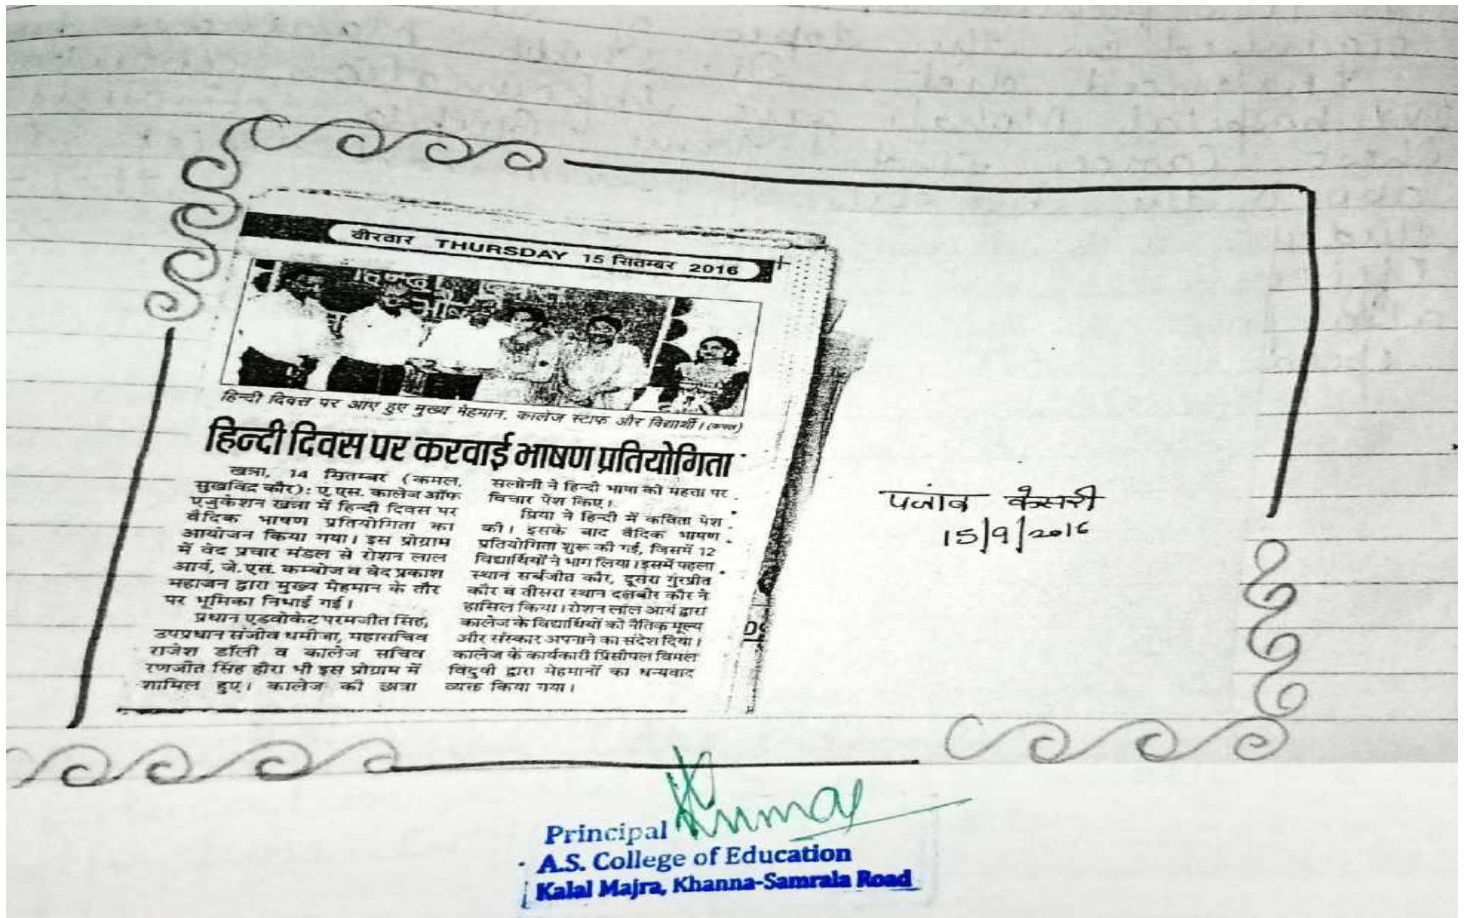 वीरवार THURSDAY 15 सितम्बर 2016
हिन्दी दिवस पर आए हुए मुख्य मेहमान, कालेज स्टाफ और विद्यार्थी। (कमल)
हिन्दी दिवस पर करवाई भाषण प्रतियोगिता
खन्ना, 14 सितम्बर (कमल,
सुखविंद्र कौर): ए.एस. कालेज ऑफ
एजुकेशन खन्ना में हिन्दी दिवस पर
वैदिक भाषण प्रतियोगिता का
आयोजन किया गया। इस प्रोग्राम
में वेद प्रचार मंडल से रोशन लाल
आर्य, जे.एस. कम्बोज व वेद प्रकाश
महाजन द्वारा मुख्य मेहमान के तौर
पर भूमिका निभाई गई।
प्रधान एडवोकेट परमजीत सिंह,
उपप्रधान संजीव धमीजा, महासचिव
राजेश डॉली व कालेज सचिव
रणजीत सिंह हीरा भी इस प्रोग्राम में
शामिल हुए। कालेज की छात्रा
सलोनी ने हिन्दी भाषा की महता पर
विचार पेश किए।
प्रिया ने हिन्दी में कविता पेश
की। इसके बाद वैदिक भाषण
प्रतियोगिता शुरू की गई, जिसमें 12
विद्यार्थियों ने भाग लिया। इसमें पहला
स्थान सर्बजीत कौर, दूसरा गुरप्रीत
कौर व तीसरा स्थान दलबीर कौर ने
हासिल किया। रोशन लाल आर्य द्वारा
कालेज के विद्यार्थियों को नैतिक मूल्य
और संस्कार अपनाने का संदेश दिया।
कालेज के कार्यकारी प्रिंसीपल विमल
विदुषी द्वारा मेहमानों का धन्यवाद
व्यक्त किया गया।
पजांब केसरी
15/9/2016
Principal
A.S. College of Education
Kalal Majra, Khanna-Samrala Road